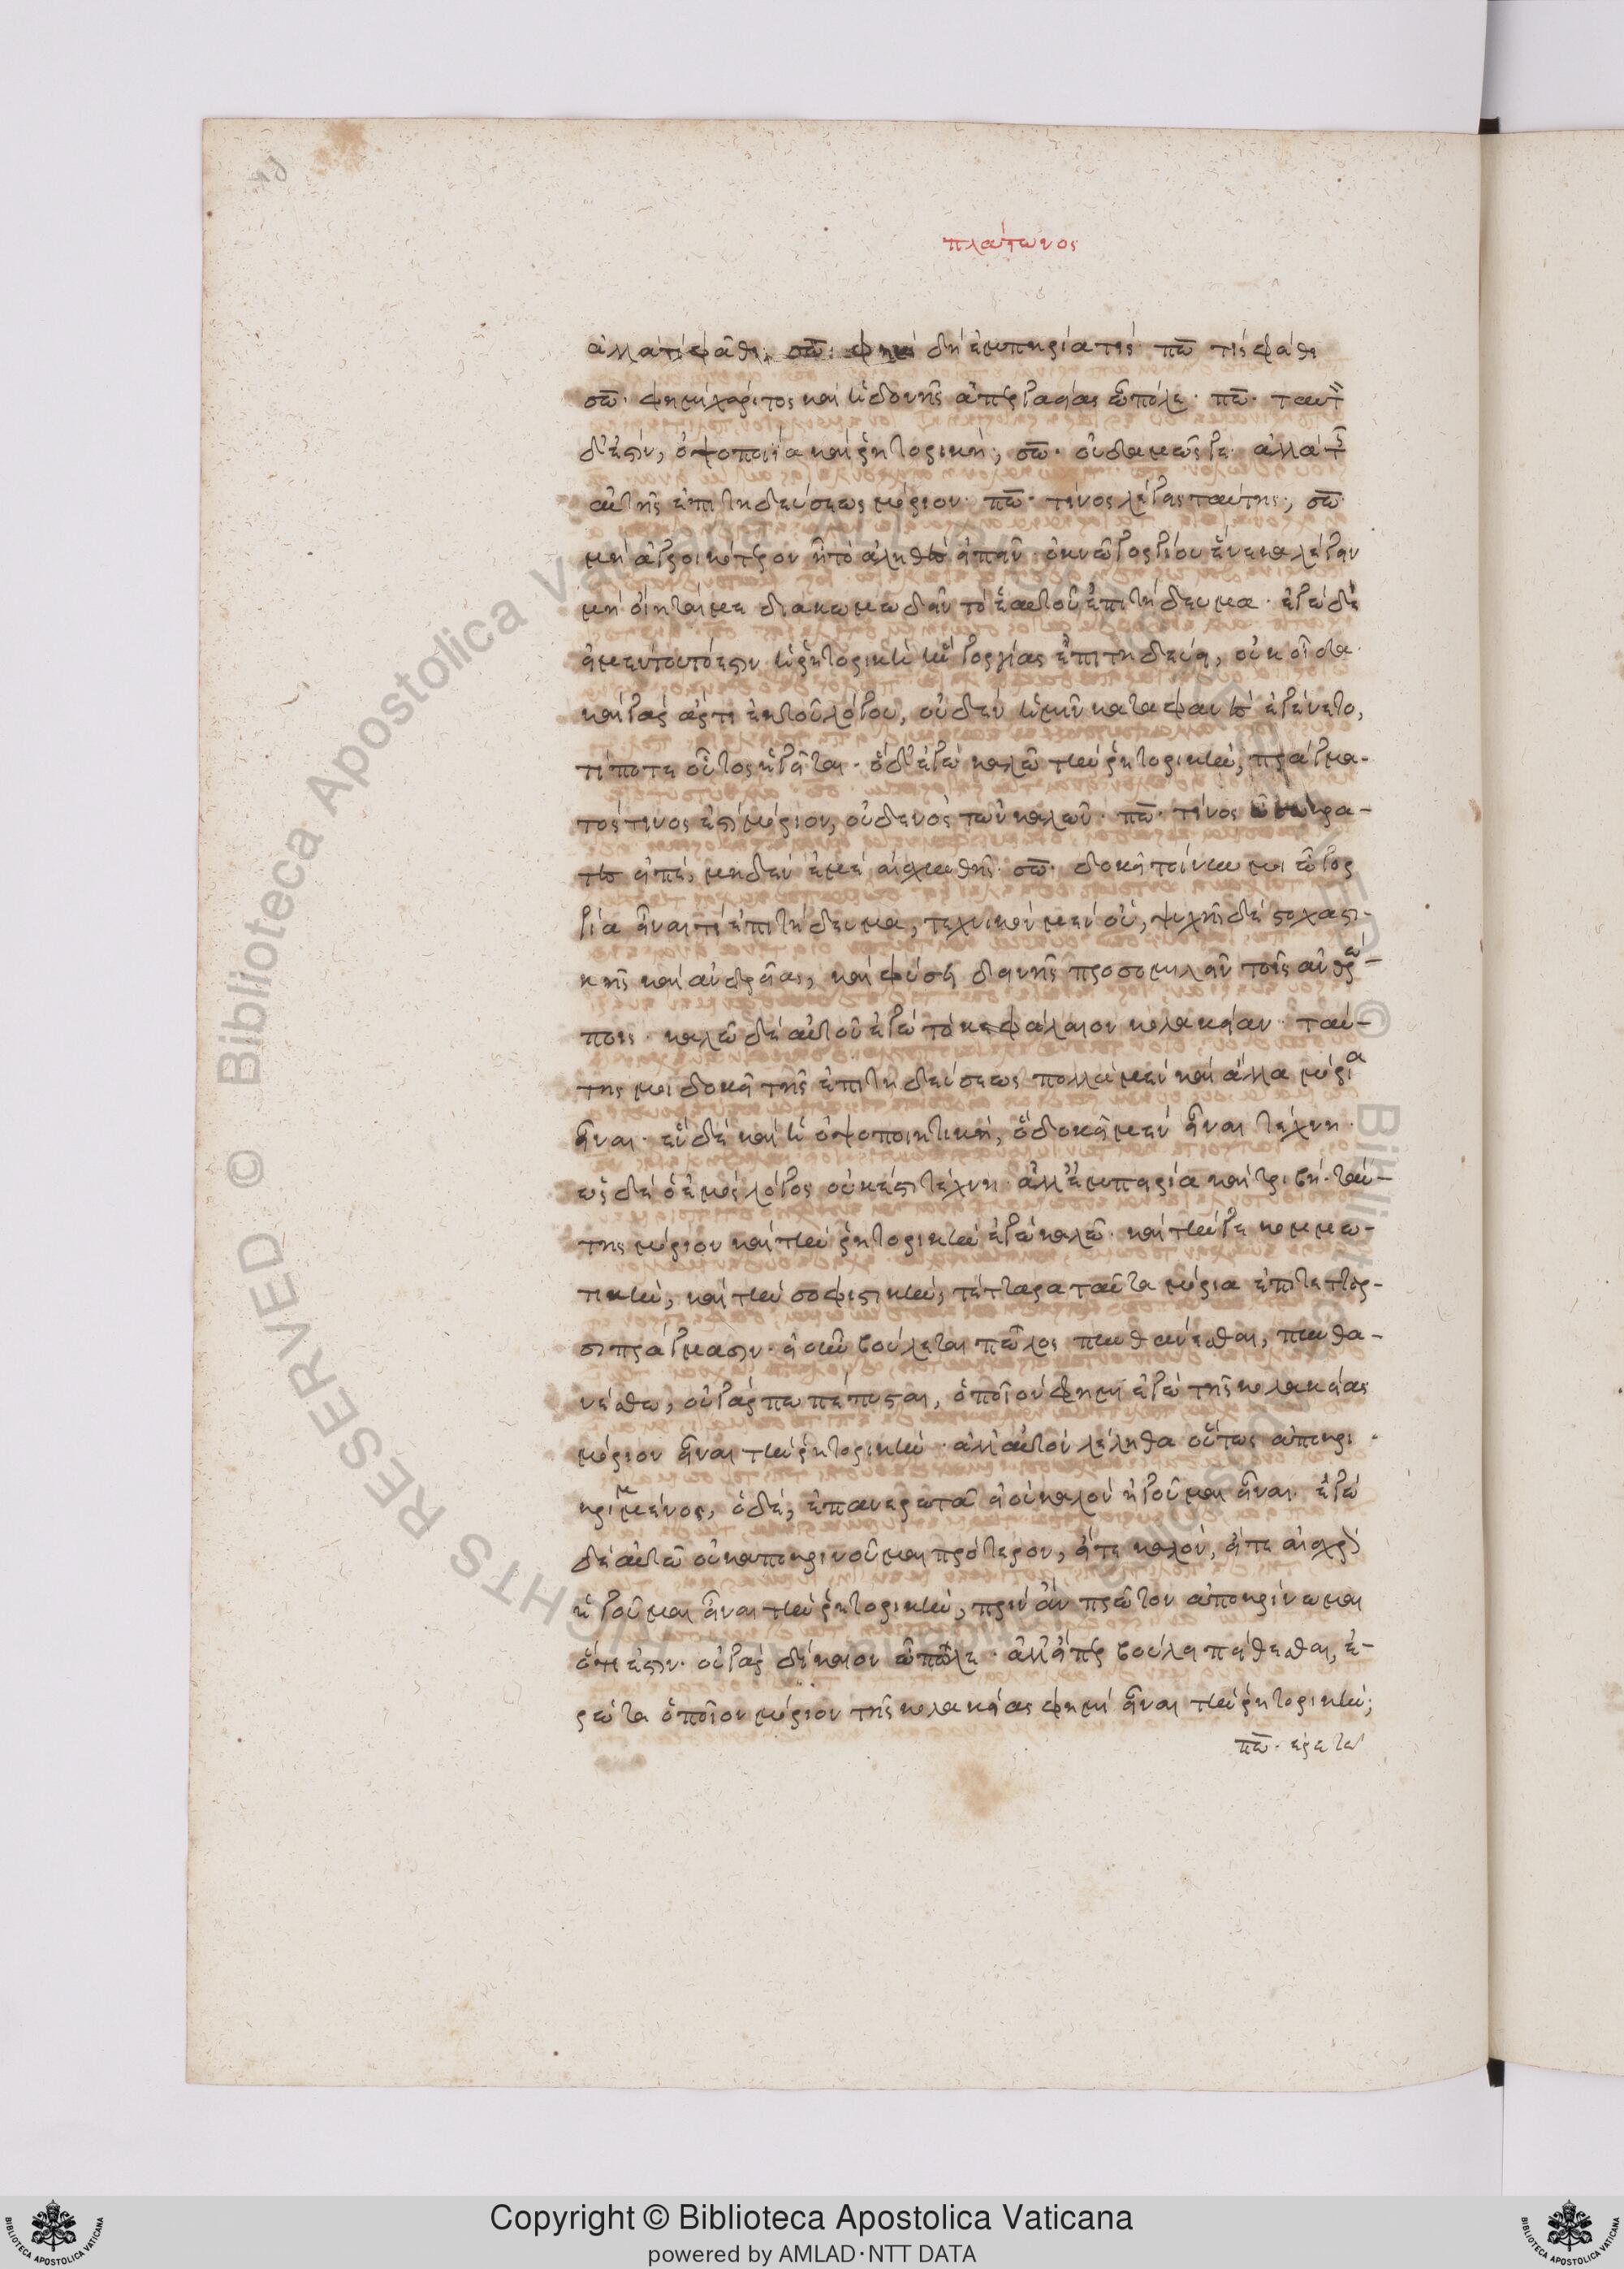 πλάτωνος
ἀλλὰ τί φάθι; σω: φημὶ δὴ ἐμπειρία τίς· πω τίς φάθι
σω· φημὶ χάριτος καὶ ἡδονῆς ἀπεργασίας ὦ πῶλε· πω· ταυτ
δ' ἐστὶν, ὀψοποιΐα καὶ ῥητορική; σω· οὐδαμῶς γε· ἀλλὰ τ
αὐτῆς ἐπιτηδεύσεως μόριον· πω· τίνος λέγεις ταύτης; σω·
μὴ ἀγροικότερον ἢ τὸ ἀληθὲς εἰπεῖν· ὀκνῶ γοργίου ἕνεκα λέγειν
μὴ οἴηταί με διακωμωδεῖν τὸ ἑαυτοῦ ἐπιτήδευμα· ἐγὼ δὲ
εἰ μὲν τοῦτό ἐστιν ἡ ῥητορικὴ ἣν γοργίας ἐπιτηδεύει, οὐκ οἶδα·
καὶ γὰρ ἄρτι ἐκ τοῦ λόγου, οὐδὲν ἡμῖν καταφανὲς ἐγένετο,
τί ποτε οὗτος ἡγεῖται· ὃ δ' ἐγὼ καλῶ τὴν ῥητορικήν, πράγμα-
τός τινος ἐστὶ μόριον, οὐδενὸς τῶν καλῶν· πω· τίνος ὦ σώκρα-
τες εἰπέ, μηδὲν ἐμὲ αἰσχυνθῇς· σω· δοκεῖ τοίνυν μοι ὦ γορ
γία εἶναι τὶ ἐπιτήδευμα, τεχνικὸν μὲν οὔ, ψυχῆς δὲ στοχαστι-
κῆς καὶ ἀνδρείας, καὶ φύσει δεινῆς προσομιλεῖν τοῖς ἀνθρώ-
ποις· καλῶ δὲ αὐτοῦ ἐγὼ τὸ κεφάλαιον κολακείαν· ταύ-
της μοι δοκεῖ τῆς ἐπιτηδεύσεως πολλὰ μὲν καὶ ἄλλα μόρια
εἶναι· ἓν δὲ καὶ ἡ ὀψοποιητική, ὃ δοκεῖ μὲν εἶναι τέχνη·
ὡς δὲ ὁ ἐμὸς λόγος οὐκ ἔστι τέχνη· ἀλλ' ἐμπειρία καὶ τριβή· ταύ-
της μόριον καὶ τὴν ῥητορικὴν ἐγὼ καλῶ· καὶ τήν γε κομμω-
τικήν, καὶ τὴν σοφιστικήν, τέτταρα ταῦτα μόρια ἐπὶ τέτταρ-
σι πράγμασιν· εἰ οὖν βούλεται πῶλος πυνθάνεσθαι, πυνθα-
νέσθω, οὐ γάρ πω πέπυσται, ὁποῖόν φημι ἐγὼ τῆς κολακείας
μόριον εἶναι τὴν ῥητορικήν· ἀλλ' αὐτὸν λέληθα οὔπω ἀποκρι
κριμμένος, ὁ δὲ, ἐπανερωτᾶ εἰ οὐ καλὸν ἡγοῦμαι εἶναι· ἐγὼ
δὲ αὐτῶ οὐκ ἀποκρινοῦμαι πρότερον, εἴτε καλόν, εἴτε αἰσχρὸν
ἡγοῦμαι εἶναι τὴν ῥητορικήν, πρὶν ἂν πρῶτον ἀποκρίνωμαι
ὅτι ἐστίν· οὐ γὰρ δίκαιον ὦ πῶλε· ἀλλ' εἴπερ βούλει πυθέσθαι, ἐ-
ρώτα ὁποῖον μόριον τῆς κολακείας φημὶ εἶναι τὴν ῥητορικήν;
πω· ἐρωτῶ
Copyright © Biblioteca Apostolica Vaticana
powered by AMLAD·NTT DATA